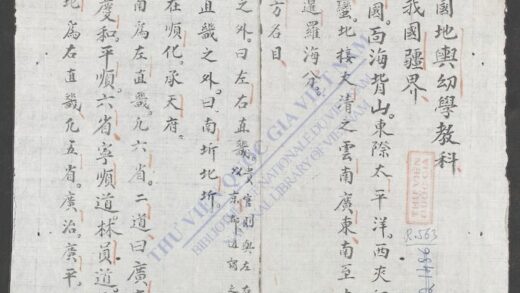 國地輿幼學教科
我國疆界
國。面海背山。東際太平洋。西夾
蠻。北接大清之雲南廣東南至
暹羅海分。
方名目
之外。曰左右直畿。
直畿之外。曰南圻北圻。
在順化。承天府。
南為左直畿。凡六省。二道曰廣
慶和。平順。六省寧順道。林員道
北為右直畿凡五省。廣治。廣平。
THƯ VIỆN QUỐC GIA VIỆT NAM
BIBLIOTHÈQUE NATIONALE DU VIETNAM
NATIONAL LIBRARY OF VIETNAM
THƯ VIỆN
QUỐC GIA
R.563